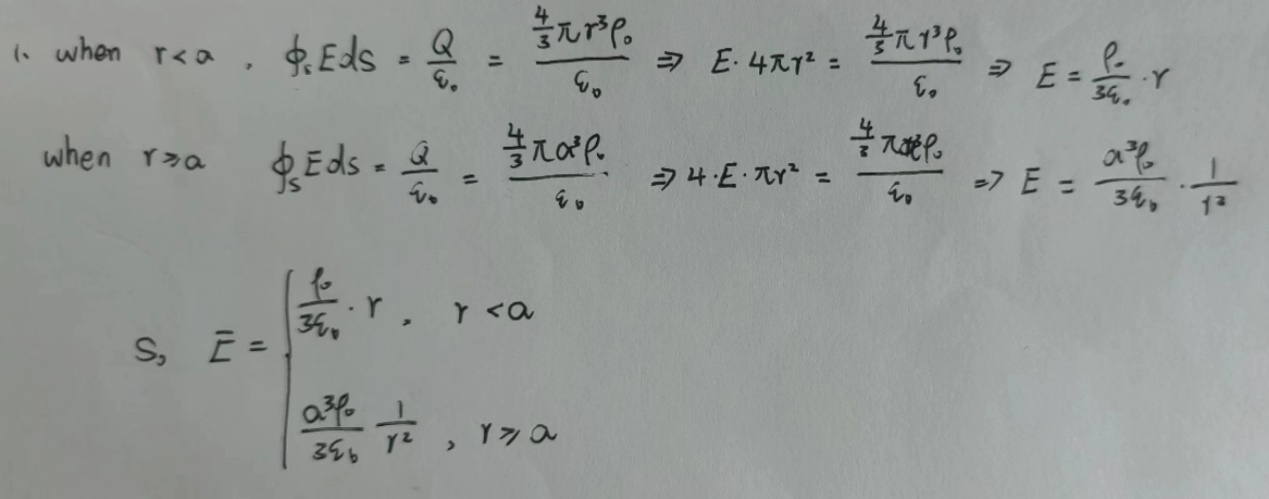 1. when r<a , ∮ₛ Eds = Q/ε₀ = (4/3 πr³ρ₀)/ε₀ ⇒ E·4πr² = (4/3 πr³ρ₀)/ε₀ ⇒ E = ρ₀/3ε₀ · r
when r≥a ∮ₛ Eds = Q/ε₀ = (4/3 πa³ρ₀)/ε₀ ⇒ 4·E·πr² = (4/3 πa³ρ₀)/ε₀ ⇒ E = a³ρ₀/3ε₀ · 1/r²
ρ₀/3ε₀ · r , r<a
So, Ē =
a³ρ₀/3ε₀ 1/r² , r≥a